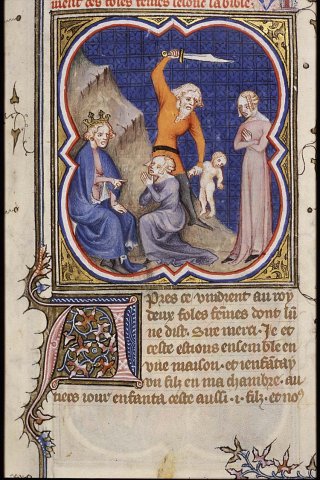 ment des foles femes selonc la bible.
Apres ce vindrent au roy
deux foles femes dont lu
ne dist. Sire merci. Je et
ceste estions ensemble en
une maison. et ienfantay
un filz en ma chambre. au
tiers iour enfanta ceste aussi .i. filz. et no